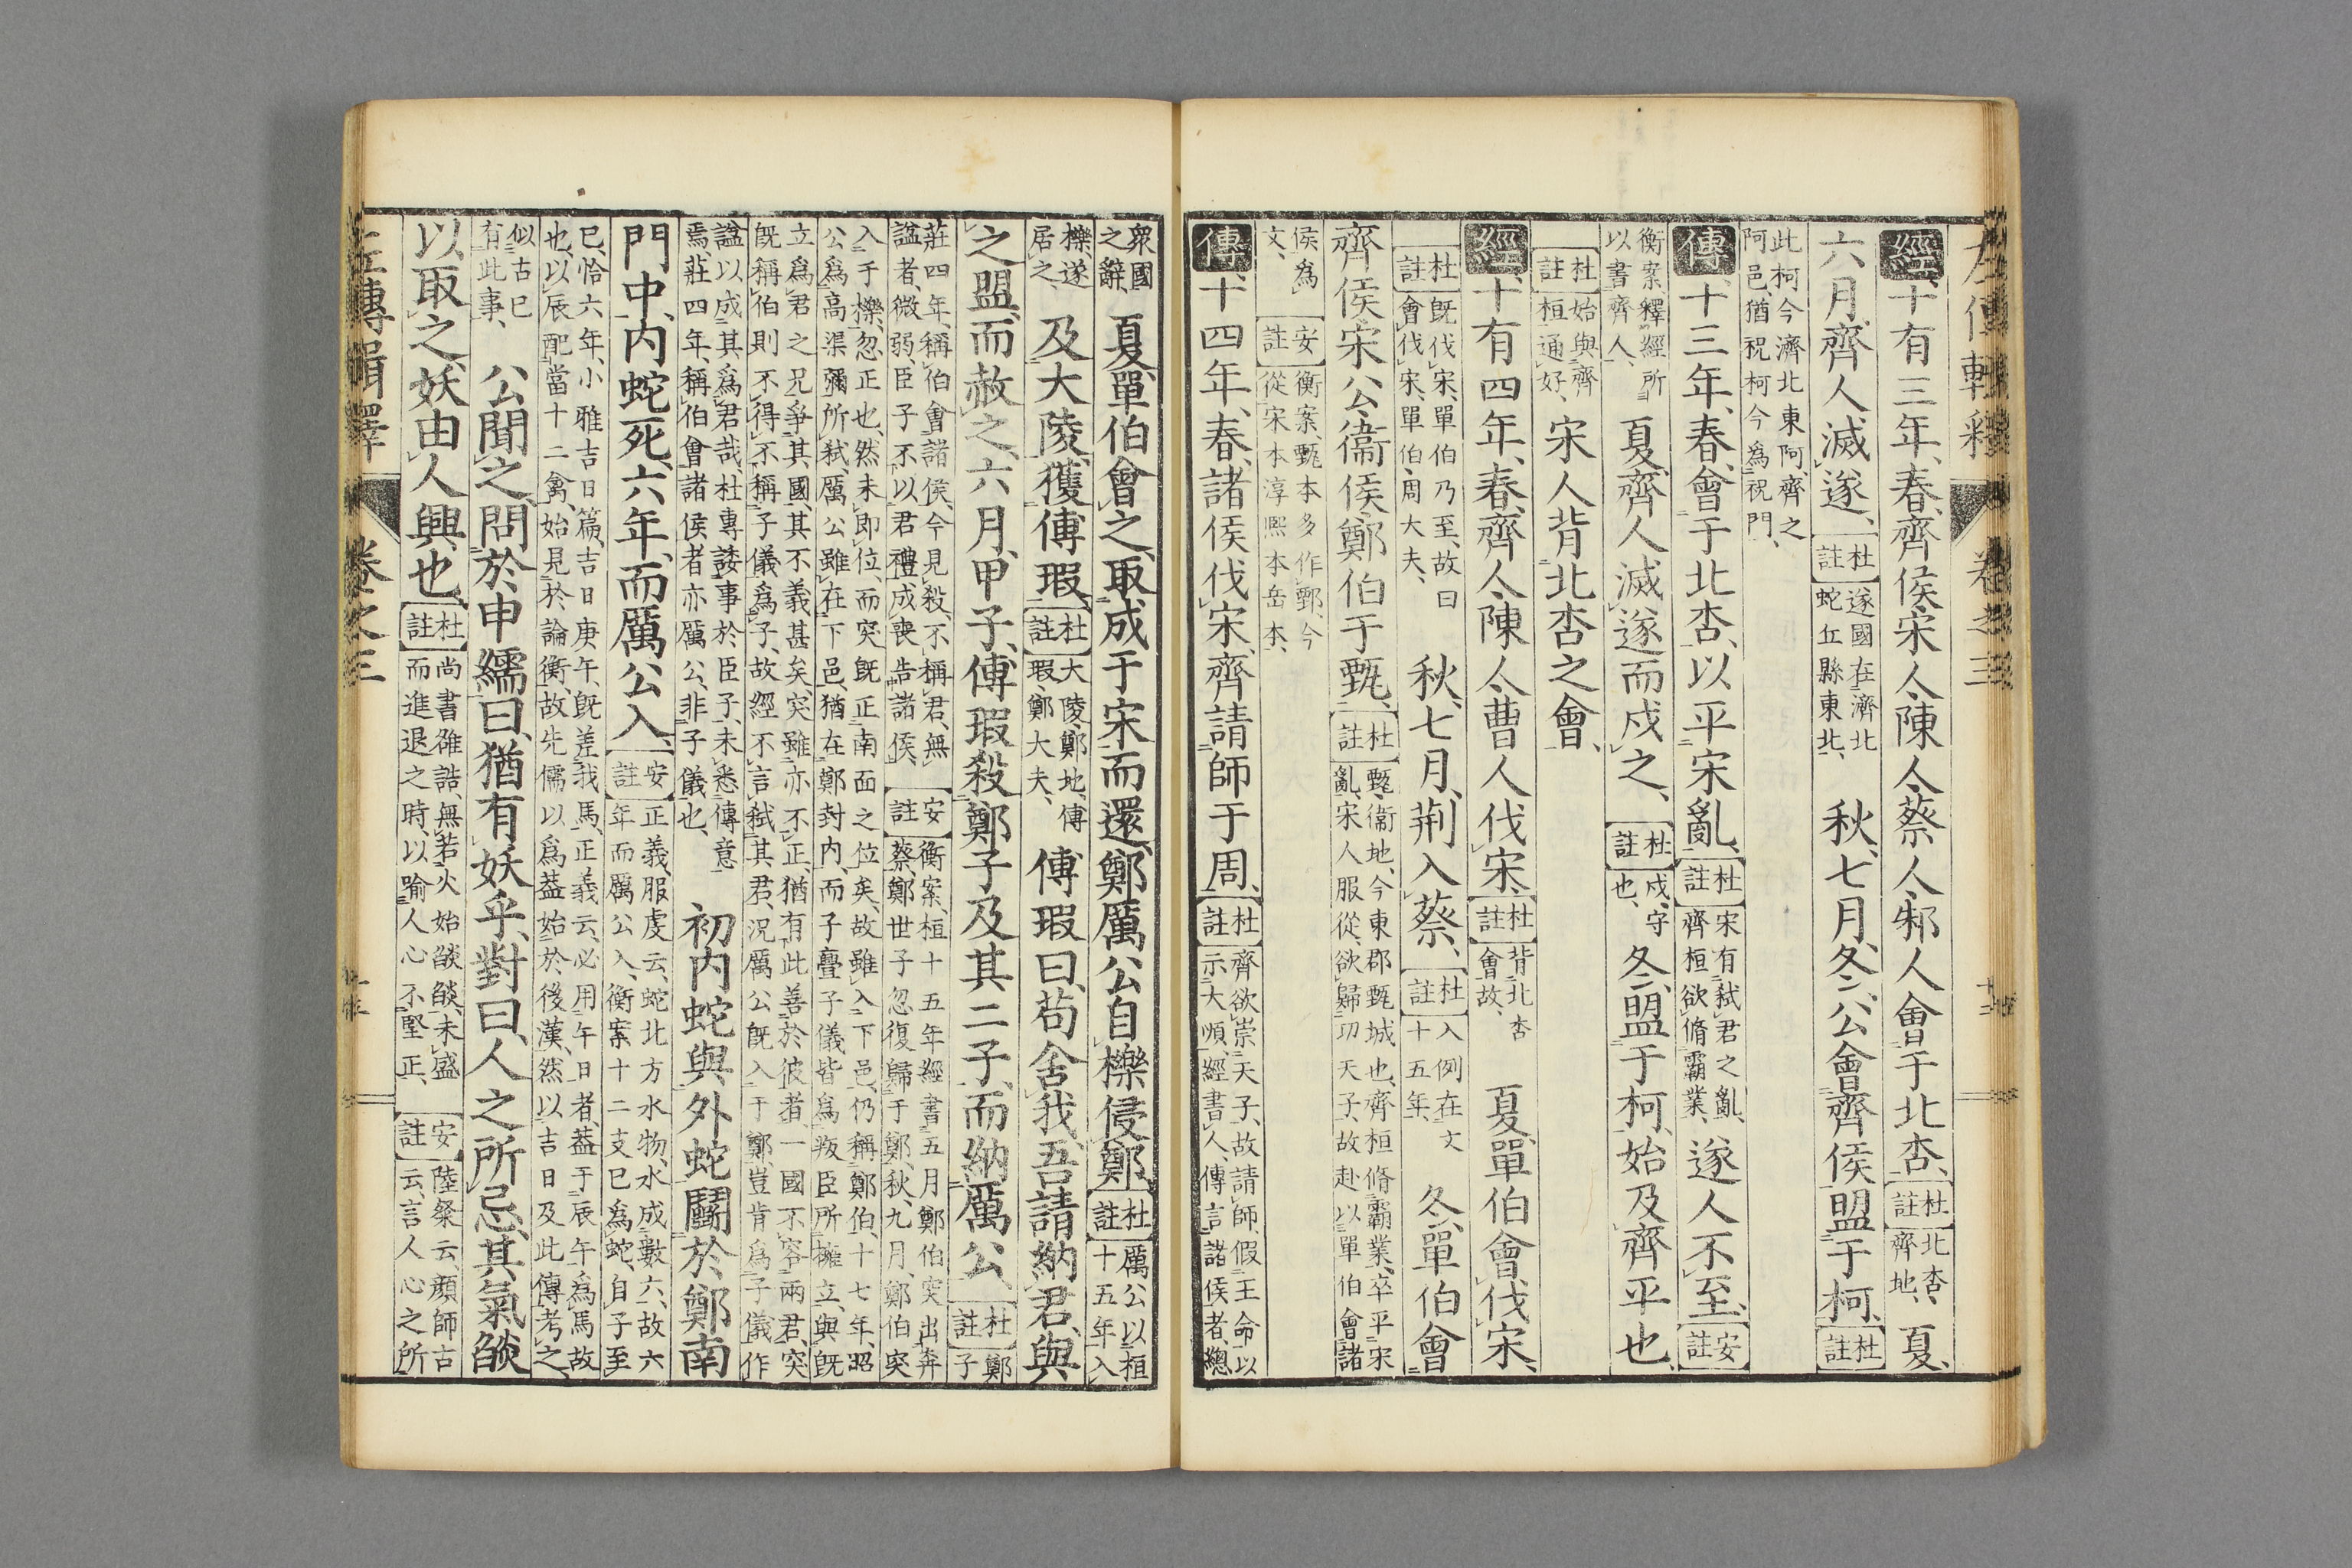 左傳輯釋 卷之三
經十有三年、春、齊侯、宋人、陳人、蔡人、邾人會于北杏、杜註北杏、齊地、夏、
六月、齊人滅遂、杜註遂國在濟北蛇丘縣東北、秋、七月、冬、公會齊侯盟于柯、杜註
此柯今濟北東阿、齊之阿邑、猶祝柯今爲祝門、
傳十三年、春、會于北杏、以平宋亂、杜註宋有弑君之亂、齊桓欲脩霸業、遂人不至、安註
衡案、釋經所以書齊人、夏、齊人滅遂而戍之、杜註戍、守也、冬、盟于柯、始及齊平也、
杜註始與齊桓通好、宋人背北杏之會、
經十有四年、春、齊人、陳人、曹人伐宋、杜註背北杏會故、夏、單伯會伐宋、
杜註既伐宋、單伯乃至、故曰會伐宋、單伯、周大夫、秋、七月、荊入蔡、杜註入例在文十五年、冬、單伯會
齊侯、宋公、衞侯、鄭伯于甄、杜註甄、衞地、今東郡甄城也、齊桓脩霸業、卒平宋亂、宋人服從、欲歸功天子、故赴以單伯會諸
侯爲文、安註衡案、甄本多作鄄、今從宋本淳熙本岳本、
傳十四年、春、諸侯伐宋、齊請師于周、杜註齊欲崇天子、故請師假王命以示大順、經書人、傳言諸侯者、總
衆國之辭、夏、單伯會之、取成于宋而還、鄭厲公自櫟侵鄭、杜註厲公以桓十五年入
櫟、遂居之、及大陵、獲傅瑕、杜註大陵、鄭地、傅瑕、鄭大夫、傅瑕曰、苟舍我、吾請納君、與
之盟、而赦之、六月、甲子、傅瑕殺鄭子及其二子、而納厲公、杜註鄭子
莊四年、稱伯會諸侯、今見殺、不稱君、無諡者、微弱、臣子不以君禮成喪告諸侯、安註衡案、桓十五年經書五月鄭伯突出奔蔡、鄭世子忽復歸于鄭、秋九月、鄭伯突
入于櫟、忽正也、然未即位、而突既正南面之位矣、故雖入下邑、仍稱鄭伯、十七年、昭公爲高渠彌所弑、厲公雖在下邑、猶在鄭封內、而子亹子儀皆爲叛臣所擁立、與既
立爲君之兄爭其國、其不義甚矣、突雖亦不正、猶有此善於彼者、一國不容兩君、突既稱伯則不得不稱子儀爲子、故經不言弑其君、況厲公既入于鄭、豈肯爲子儀作
諡以成其爲君哉、杜專諉事於臣子、未悉傳意焉、莊四年、稱伯會諸侯者亦厲公、非子儀也、初內蛇與外蛇鬪於鄭南
門中、內蛇死、六年、而厲公入、安註正義、服虔云、蛇北方水物、水成數六、故六年而厲公入、衡案十二支巳爲蛇、自子至
巳、恰六年、小雅吉日篇、吉日庚午、既差我馬、正義云、必用午日者、葢于辰午爲馬故也、以辰配當十二禽、始見於論衡、故先儒以爲葢始於後漢、然以吉日及此傳考之、
似古已有此事、公聞之、問於申繻曰、猶有妖乎、對曰、人之所忌、其氣燄
以取之、妖由人興也、杜註尚書雒誥、無若火始燄燄、未盛而進退之時、以喻人心不堅正、安註陸粲云、顏師古云、言人心之所
左傳輯釋 卷之三